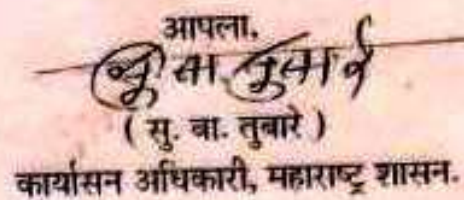 आपला,
सु. बा. तुबारे
( सु. बा. तुबारे )
कार्यासन अधिकारी, महाराष्ट्र शासन.